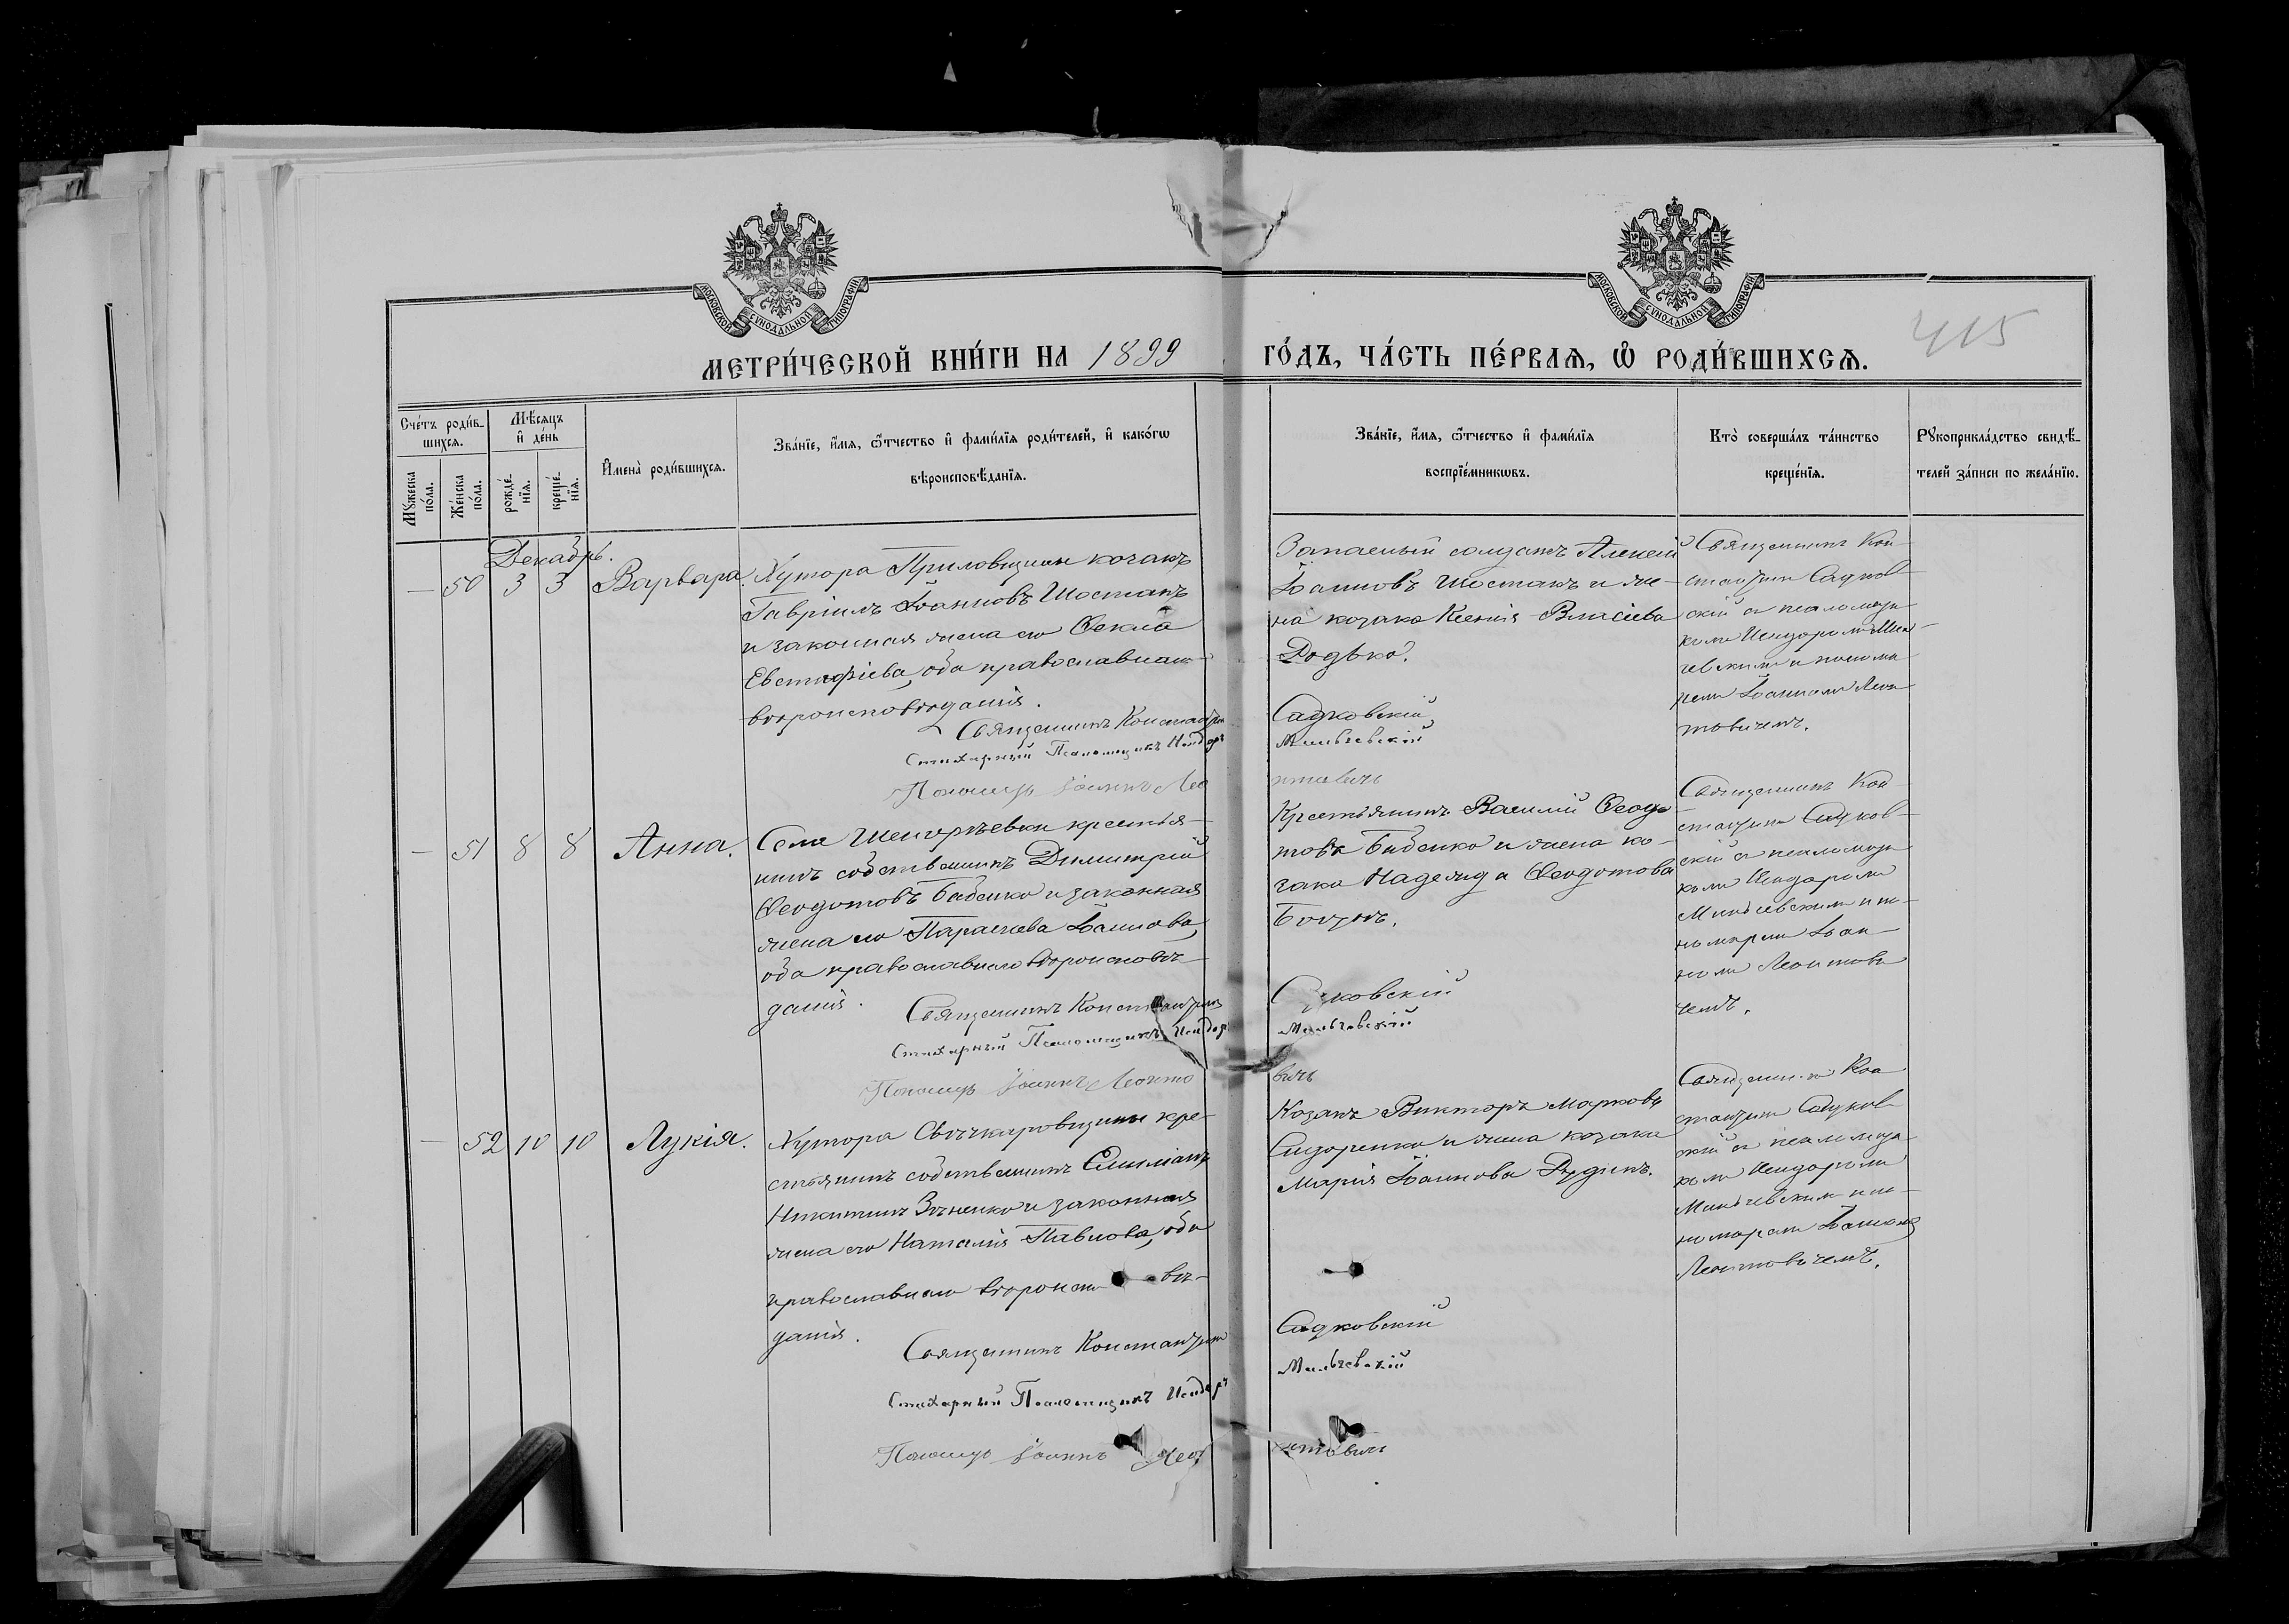 МОСКОВСКОЙ СѴНОДАЛЬНОЙ ТИПОГРАФІИ
МОСКОВСКОЙ СѴНОДАЛЬНОЙ ТИПОГРАФІИ
415
МЕТРИ́ЧЕСКОЙ КНИ́ГИ НА 1899 ГО́ДЪ, ЧА́СТЬ ПЕ́РВАЯ, Ѿ РОДИ́ВШИХСЯ.
Сче́тъ роди́в-
шихся.
Мꙋжеска по́ла.
Же́нска по́ла.
Мѣ́сяцъ и҆ де́нь
рожде́-
нїя.
креще́-
нїя.
И҆мена̀ роди́вшихся.
Зва́нїе, и҆́мя, ѻ҆́тчество и҆ фами́лїя роди́телей, и҆ како́гѡ
вѣроисповѣ́данїя.
Зва́нїе, и҆́мя, ѻ҆́тчество и҆ фами́лїя
воспрїе́мникѡвъ.
Кто̀ соверша́лъ та́инство
креще́нїя.
Рꙋкоприкла́дство свидѣ́-
телей за́писи по жела́нїю.
Декабрь.
— 50 3 3 Варвара.
Хутора Приловщини козакъ
Гавріилъ Іоанновъ Шостакъ
и законная жена его Ѳекла
Евстафіева, оба православнаго
вѣроисповѣданія.
Священникъ Константинъ
Стихарный Псаломщикъ Исидоръ
Пономарь Іоаннъ Лео
Запасный солдатъ Алексій
Іоанновъ Шостакъ и же-
на козака Ксенія Власіева
Родько.
Садковскій
Мильчевскій
нтовичъ
Священникъ Кон-
стантинъ Садков-
скій съ псаломщи-
комъ Исидоромъ Миль-
чевскимъ и понома-
ремъ Іоанномъ Леон-
товичемъ.
— 51 8 8 Анна.
Села Шенгерѣевки крестья-
нинъ собственникъ Димитрій
Ѳеодотовъ Бабенко и законная
жена его Параскева Іоаннова,
оба православнаго вѣроисповѣ-
данія.
Священникъ Константинъ
Стихарный Псаломщикъ Исидор
Пономарь Іоаннъ Леонто
Крестьянинъ Василій Ѳеодо-
товъ Бабенко и жена ко-
зака Надежда Ѳеодотова
Садковскій
Мильчевскій
вичъ
Священникъ Кон-
стантинъ Садков-
скій съ псаломщи-
комъ Исидоромъ
Мильчевскимъ и по-
номаремъ Іоан-
номъ Леонтови-
чемъ.
— 52 10 10 Лукія.
Хутора Свѣчкаровщины кре-
стьянинъ собственникъ
Никитинъ и законная
жена его Наталія Павлова, оба
православнаго вѣроиспо вѣ-
данія.
Священникъ Константинъ
Стихарный Псаломщикъ Исидоръ
Пономарь Іоаннъ Лео
Козакъ Викторъ Марковъ
Сидоренко и жена козака
Марія Іоаннова Рудикъ.
Садковскій
Мильчевскій
нтовичъ
Священникъ Кон
стантинъ Садков
скій съ псаломщи
комъ Исидоромъ
Мильчевскимъ и по-
номаремъ Іоанномъ
Леонтовичемъ.